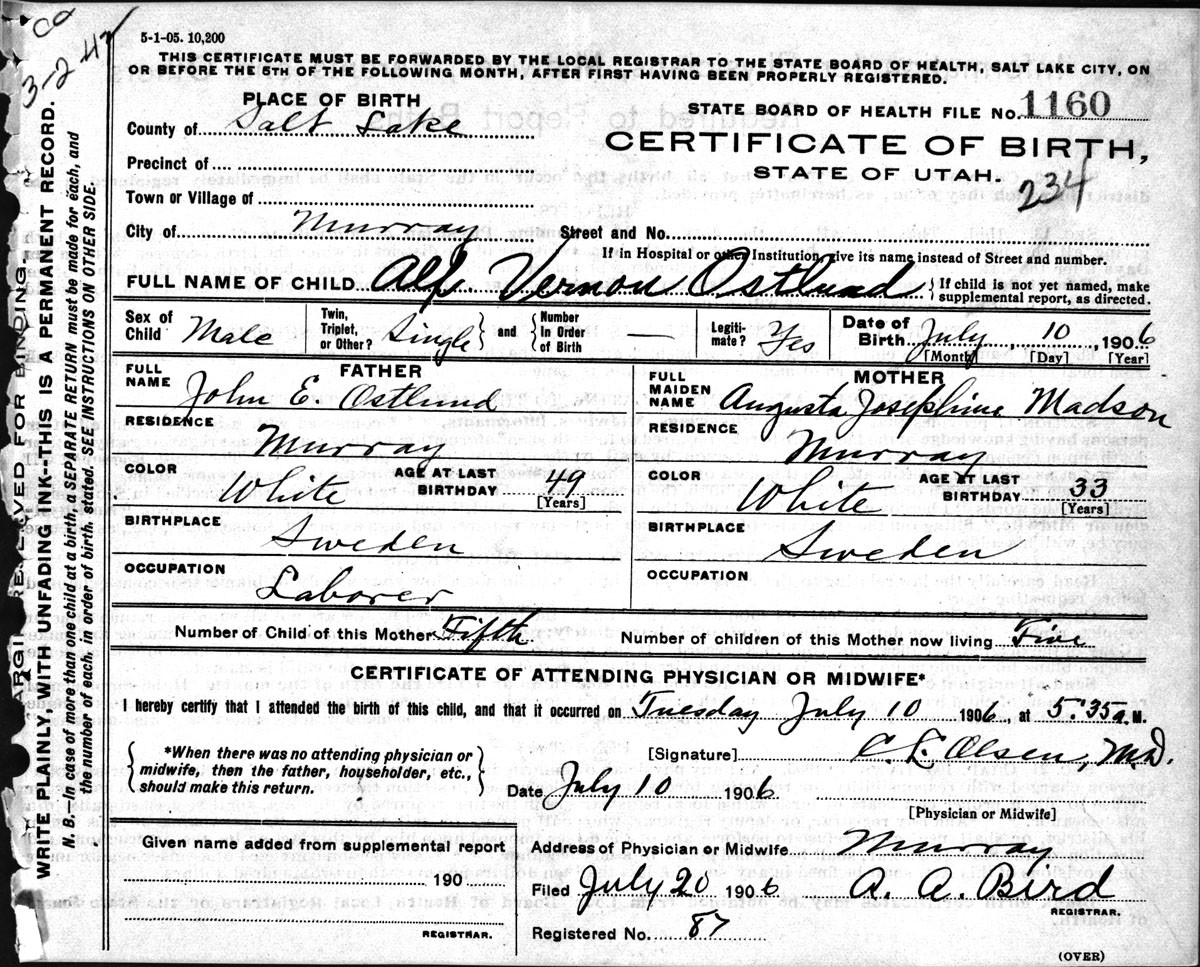 ca
3-2-47
5-1-05. 10,200
THIS CERTIFICATE MUST BE FORWARDED BY THE LOCAL REGISTRAR TO THE STATE BOARD OF HEALTH, SALT LAKE CITY, ON
OR BEFORE THE 5TH OF THE FOLLOWING MONTH, AFTER FIRST HAVING BEEN PROPERLY REGISTERED.
PLACE OF BIRTH
STATE BOARD OF HEALTH FILE No. 1160
County of Salt Lake
CERTIFICATE OF BIRTH,
Precinct of
STATE OF UTAH.
234
Town or Village of
City of Murray Street and No.
If in Hospital or other Institution, give its name instead of Street and number.
FULL NAME OF CHILD Alf. Vernon Ostlund { If child is not yet named, make supplemental report, as directed.
Sex of Child Male Twin, Triplet, or Other? Single } and { Number In Order of Birth — Legiti-mate? Yes Date of Birth July 10, 1906
[Month] [Day] [Year]
FATHER
FULL NAME John E. Ostlund
RESIDENCE Murray
COLOR White AGE AT LAST BIRTHDAY 49
[Years]
BIRTHPLACE Sweden
OCCUPATION Laborer
MOTHER
FULL MAIDEN NAME Augusta Josephine Madson
RESIDENCE Murray
COLOR White AGE AT LAST BIRTHDAY 33
[Years]
BIRTHPLACE Sweden
OCCUPATION
Number of Child of this Mother Fifth Number of children of this Mother now living Five
CERTIFICATE OF ATTENDING PHYSICIAN OR MIDWIFE*
I hereby certify that I attended the birth of this child, and that it occurred on Tuesday July 10 1906, at 5:35 a.M.
{ *When there was no attending physician or
midwife, then the father, householder, etc.,
should make this return. }
[Signature] C. L. Olsen, M.D.
Date July 10 1906
[Physician or Midwife]
Given name added from supplemental report
190
REGISTRAR.
Address of Physician or Midwife Murray
Filed July 20 1906 A. A. Bird
REGISTRAR.
Registered No. 87
(OVER)
MARGIN RESERVED FOR BINDING
WRITE PLAINLY, WITH UNFADING INK--THIS IS A PERMANENT RECORD.
N. B.—In case of more than one child at a birth, a SEPARATE RETURN must be made for each, and
the number of each, in order of birth, stated. SEE INSTRUCTIONS ON OTHER SIDE.